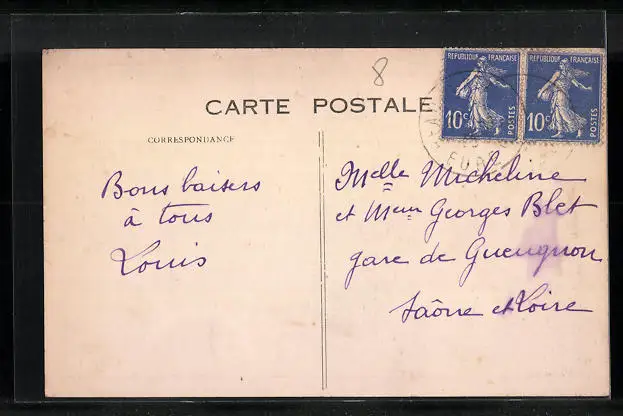 8
CARTE POSTALE
CORRESPONDANCE
REPUBLIQUE FRANÇAISE
10c POSTES
REPUBLIQUE FRANÇAISE
10c POSTES
EURE
Bons baisers
à tous
Louis
Melle Micheline
et Meur Georges Blet
gare de Gueugnon
Saône et Loire